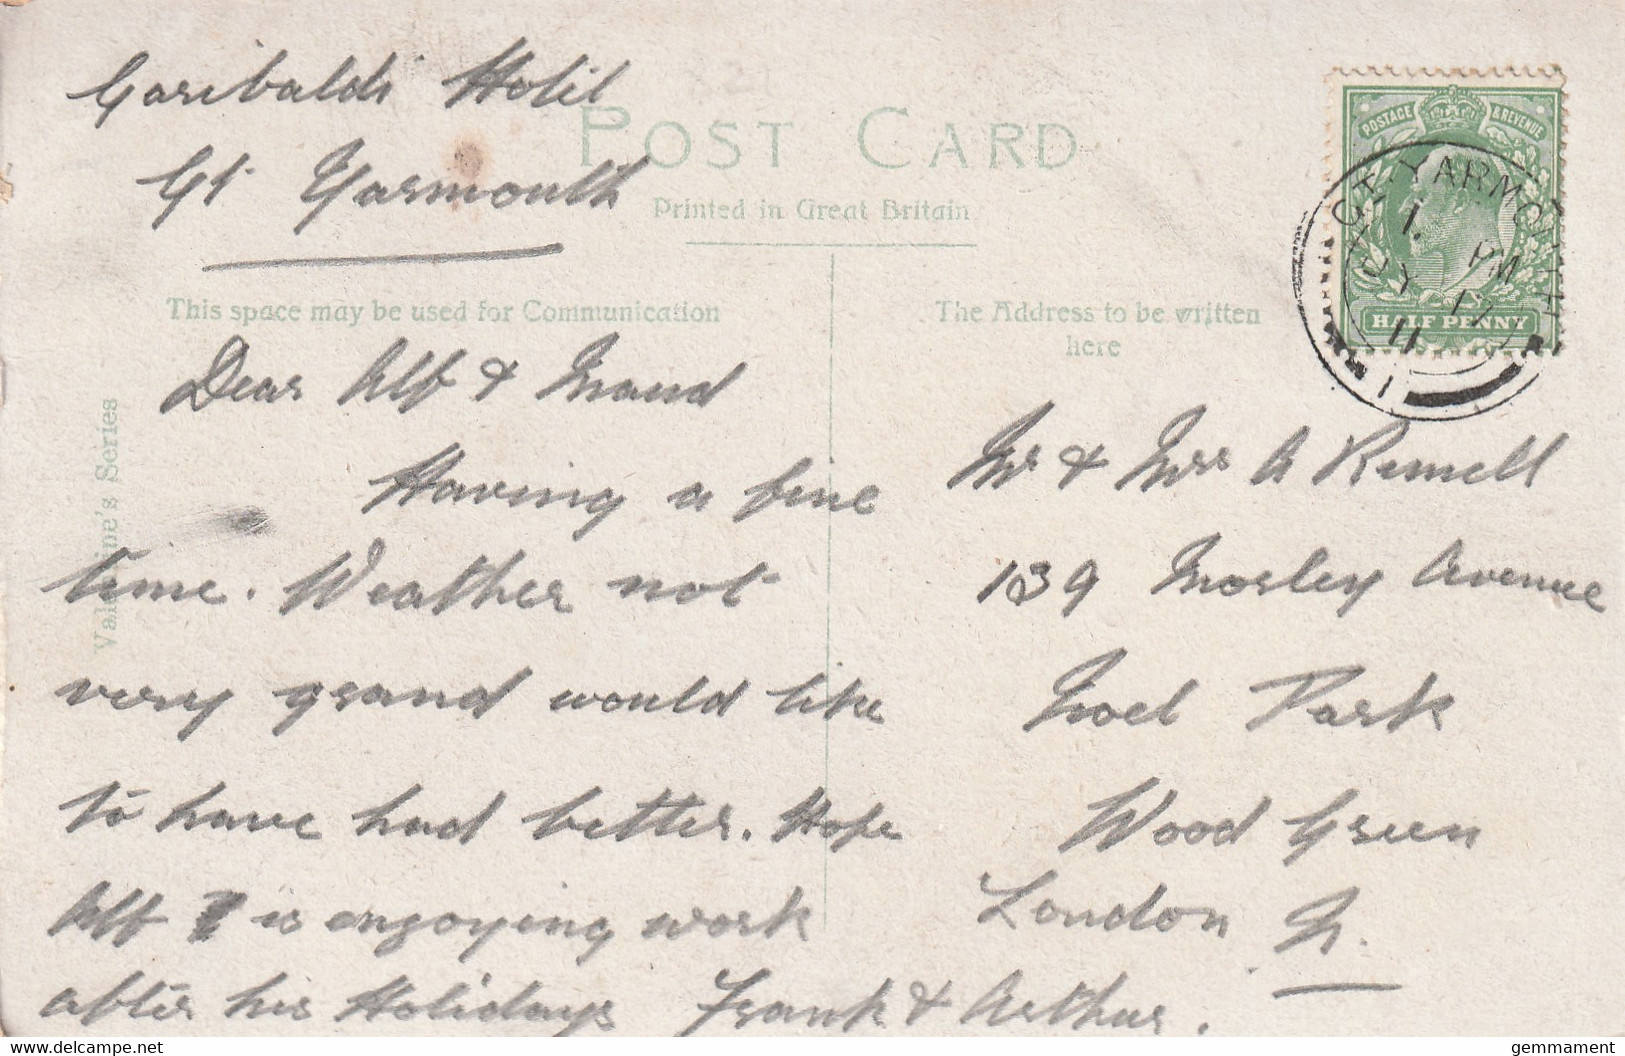 Garibaldi Hotel
Gt Yarmouth
POST CARD
Printed in Great Britain
This space may be used for Communication
The Address to be written
here
Valentine's Series
POSTAGE & REVENUE
HALF PENNY
GT. YARMOUTH
1. PM
JY 17
11
1
Dear Alf & Maud
Having a fine
time. Weather not
very grand would like
to have had better. Hope
Alf is enjoying work
after his Holidays Frank & Arthur.
Mr & Mrs A Rumell
139 Mosley Avenue
Noel Park
Wood Green
London N.
gemmament